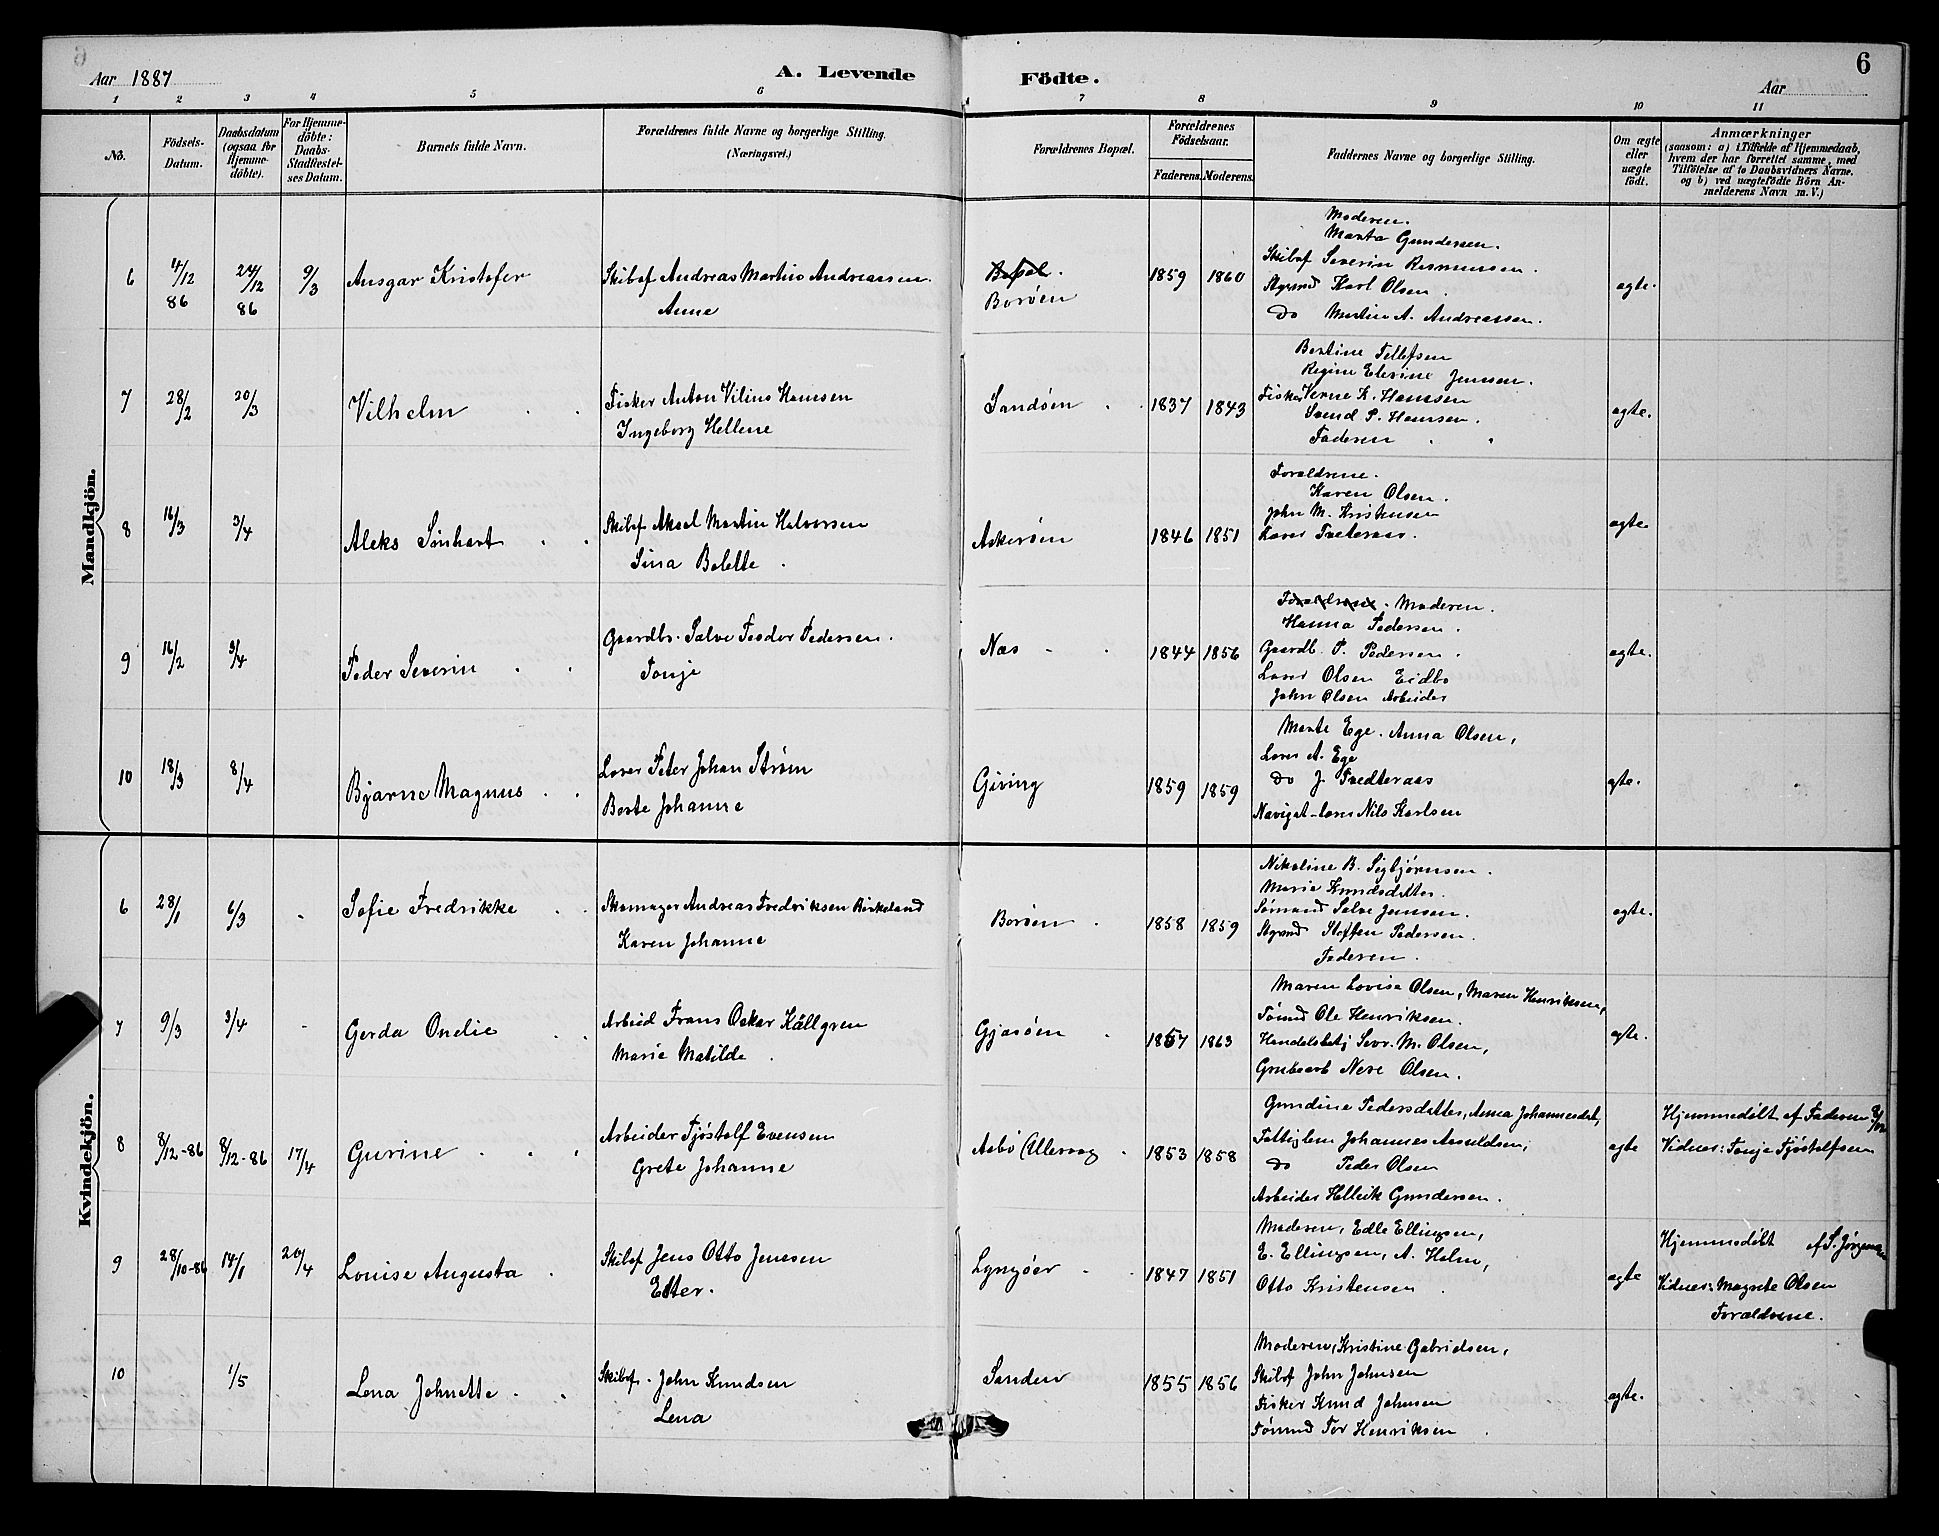 6
Aar 1887
A. Levende
Födte.
Aar
6
1 2 3 4 5 6 7 8 9 10 11
No.
Födsels-
Datum.
Daabsdatum
(ogsaa for
Hjemme-
döbte).
For Hjemme-
döbte:
Daabs-
Stadfæstel-
ses Datum.
Barnets fulde Navn.
Forældrenes fulde Navne og borgerlige Stilling.
(Næringsvei.)
Forældrenes Bopæl.
Forældrenes
Födselsaar.
Faderens. Moderens.
Faddernes Navne og borgerlige Stilling.
Om ægte
eller
uægte
födt.
Anmærkninger
(saasom: a) i Tilfælde af Hjemmedaab,
hvem der har forrettet samme, med
Tilföielse af to Daabsvidners Navne,
og b) ved uægtefödte Börn An-
melderens Navn m. V.)
Mandkjön.
6
4/12
86
24/12
86
9/3
Ansgar Kristofer
Skibsf Andreas Martius Andreassen
Anne
Bopæl.
Borøen
1859 1860
Moderen.
Marta Gundersen.
Skibsf Severin Rasmussen.
Styrmd Karl Olsen.
do Martin A. Andreassen.
ægte.
7
28/2
20/3
Vilhelm
Fisker Anton Vilius Hansen
Ingeborg Hellene
Sandøen
1837 1843
Bertine Tellefsen
Regine Elevine Jensen.
Fisker Verne K. Hansen
Svend P. Hansen.
Faderen
ægte.
8
16/3
3/4
Aleks Sinhart
Skibsf Aksel Martin Halvorsen
Sina Bolette
Askerøen
1846 1851
Forældrene.
Karen Olsen.
John M. Kristensen
Laver Træteraas.
ægte.
9
16/2
3/4
Peder Severin
Gaardbr. Salve Feodor Pedersen.
Tonje
Næs
1844 1856
Forældrene. Moderen.
Hanna Pedersen.
Gaardb. P. Pedersen.
Laver Olsen Eidbo
John Olsen Arbeider
ægte.
10
18/3
8/4
Bjarne Magnus
Lover Peter Johan Strøm
Berte Johanne
Giving
1859 1859
Marte Ege. Anna Olsen,
Lover A. Ege
do J. Trædteraas
Navigat-lærer Nils Karlsen
ægte.
Kvindekjön.
6
28/1
6/3
Sofie Fredrikke
Skomager Andreas Fredriksen Birkeland
Karen Johanne
Borøen
1858 1859
Nikoline B. Sigbjørnsen.
Marie Knudsdatter.
Sømand Salve Jensen.
Styrmd Steffen Pedersen.
Faderen.
ægte.
7
9/3
3/4
Gerda Onelie
Arbeid Frans Oskar Källgren
Marie Matilde
Gjæsøen
1857 1863
Maren Lovise Olsen, Maren Henriksen,
Tømmd Ole Henriksen.
Handelsbetj Sevr. M. Olsen,
Grubearb Nere Olsen.
ægte.
8
8/12-86
8/12-86
17/4
Gurine
Arbeider Tjøstolf Evensen
Grete Johanne
Aasbø (Allevaag
1853 1858
Gundine Pedersdatter, Anna Johannesdat,
Fattiglem Johannes Asuldsen,
do Peder Olsen
Arbeider Hellik Gundersen.
ægte
Hjemmedöbt af Faderen 8/12
Vidner: Tonje Tjøstolfsen
9
28/10-86
14/1
20/4
Louise Augusta
Skibsf Jens Otto Jenssen
Etter.
Lyngøer
1847 1851
Moderen, Edle Ellingsen,
E. Ellingsen, A. Holm,
Otto Kristensen
ægte
Hjemmedöbt af S. Jørgensen
Vidner: Magrete Olsen
Forældrene.
10
1/5
Lena Johnette
Skibsf. John Knudsen
Lena
Sanden
1855 1856
Moderen, Kristine Gabrielsen,
Skibsf John Johnsen
Fisker Knud Johnsen
Tømmd Tor Henriksen
ægte.